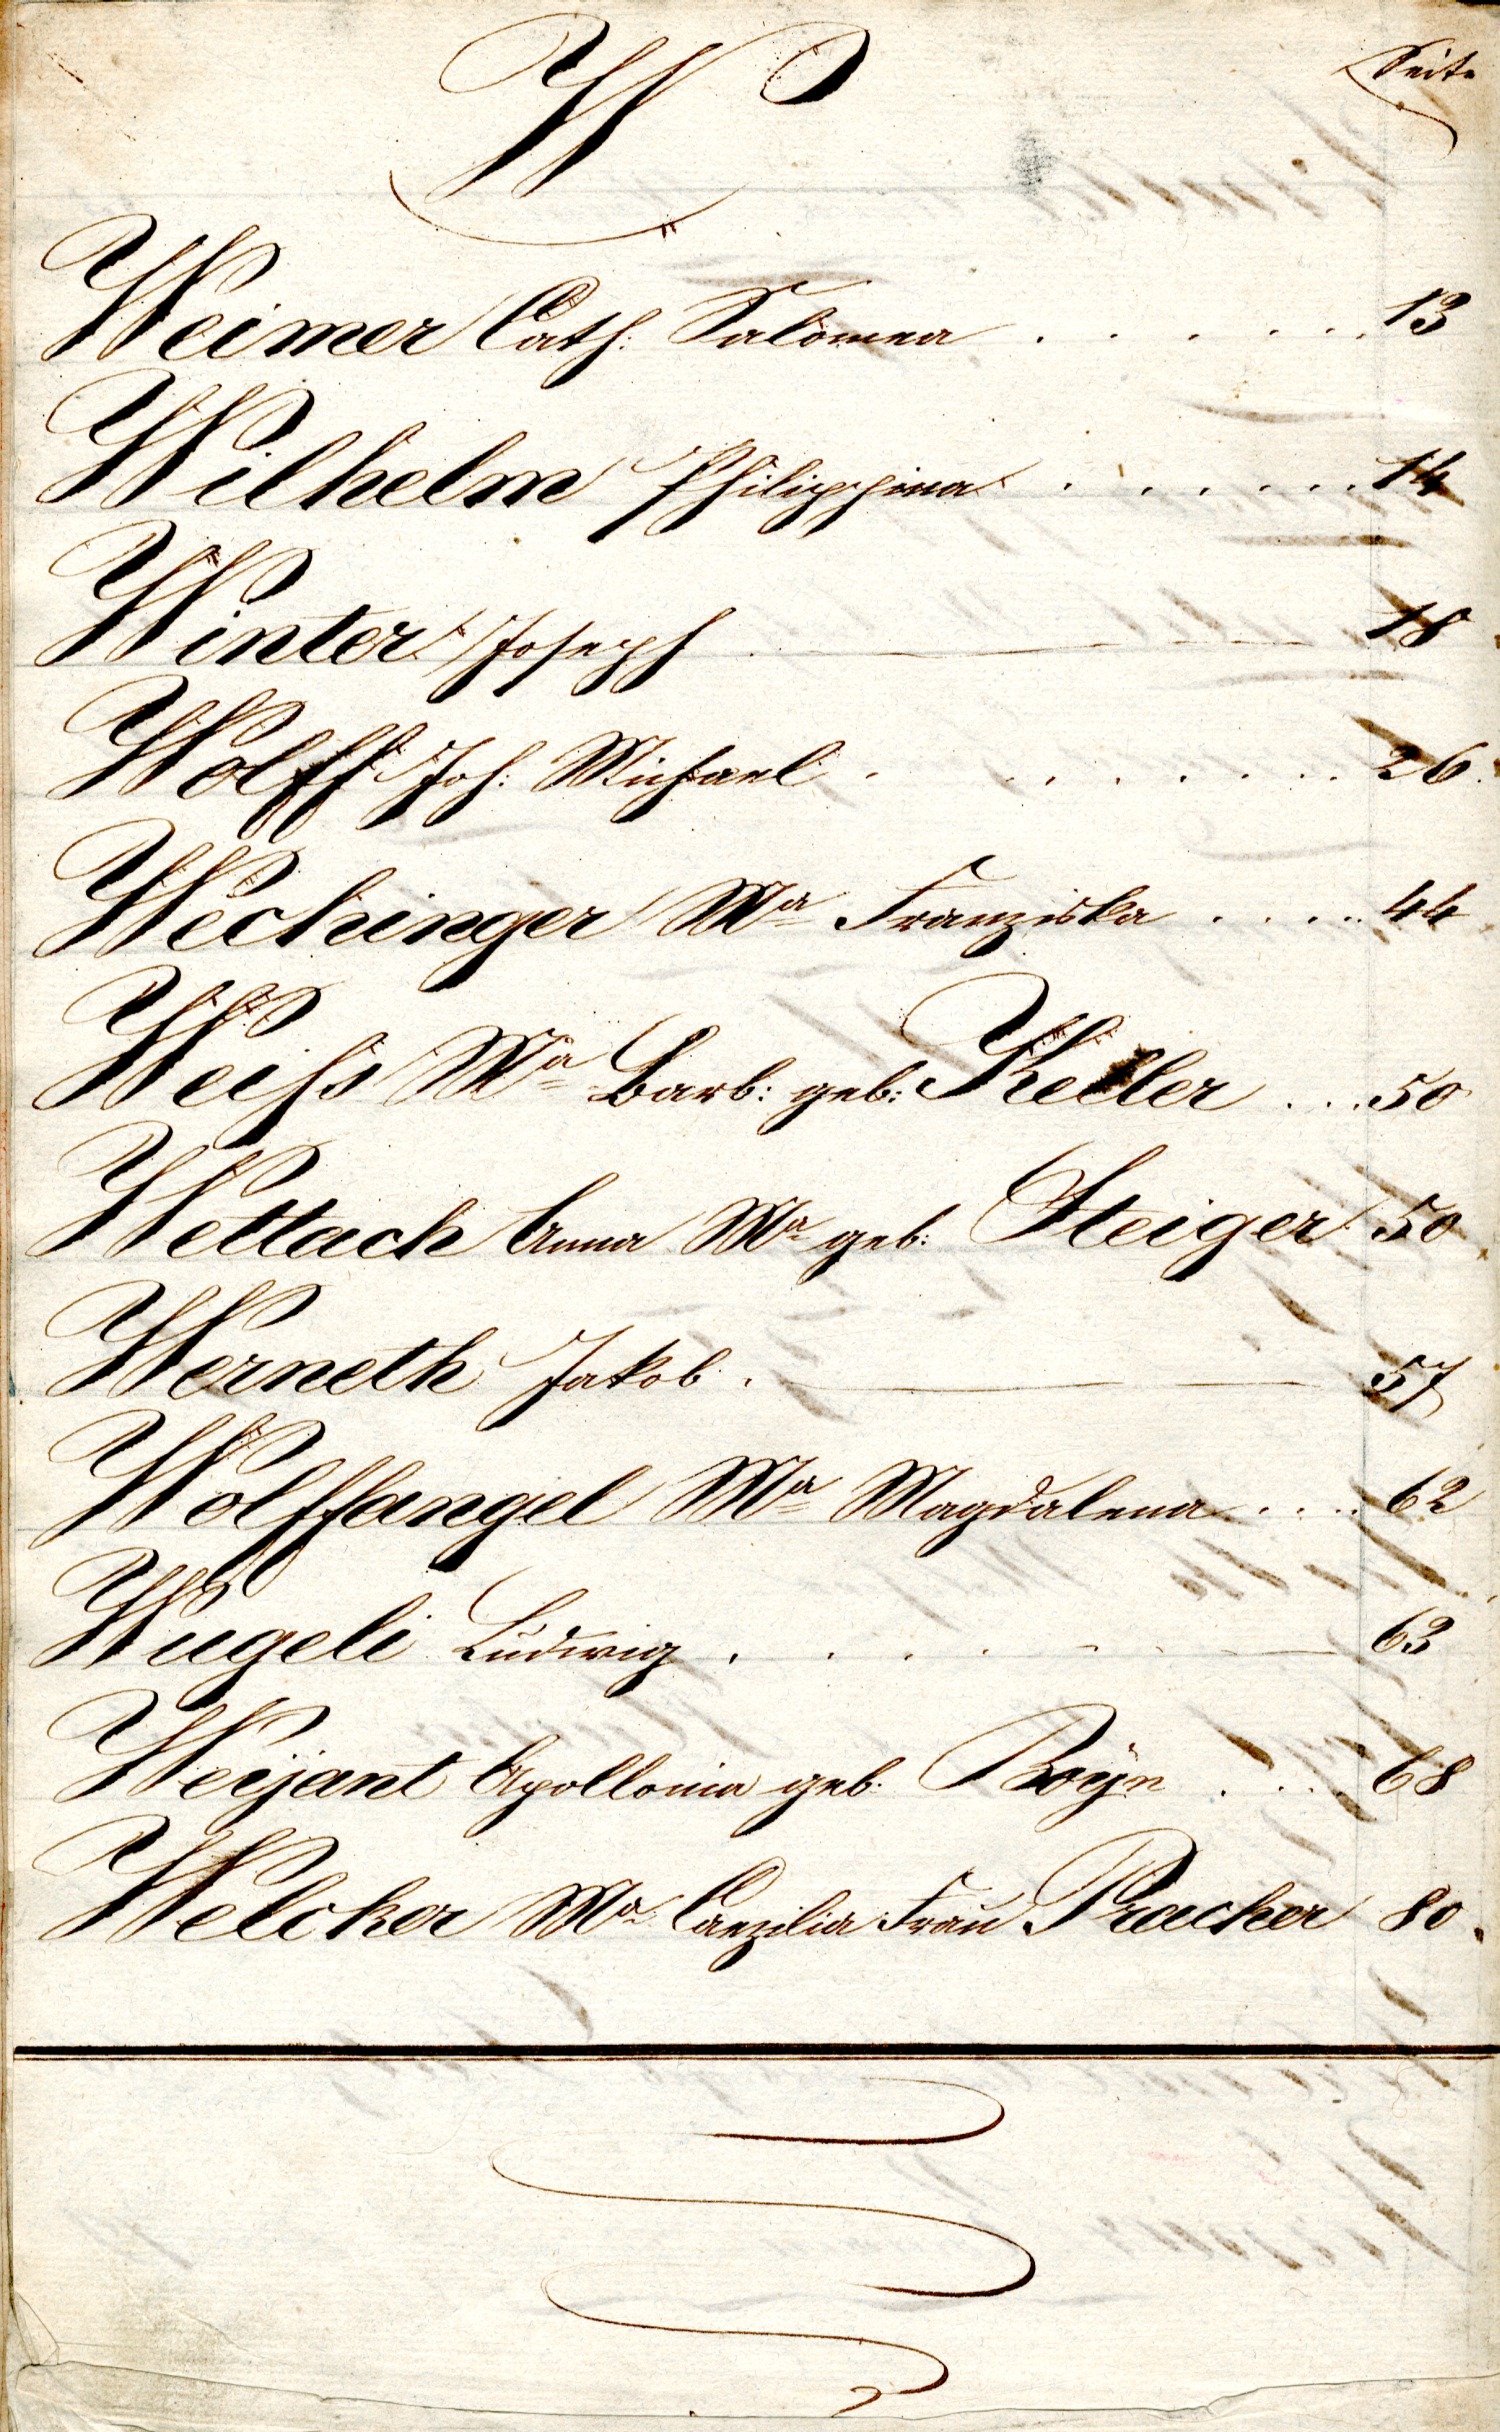 W
Seite
Weimer Cath: Salomea . . . . . . 13
Wilhelm Philippina . . . . . . 14
Winter Joseph 18
Wolff Joh: Michael . . . . . . . 26.
Wechinger Ma Franziska . . . . 44
Weiss Ma Barb: geb: Keller . . . 50
Wettach Anna Ma geb: Steiger 50
Werneth Jakob . 57
Wolffangel Ma Magdalena . . . . 62
Wugeli Ludwig . . . . 63
Weijant Apollonia geb: . . . 68
Welcker Ma Caezilia Frau Pracher 80.